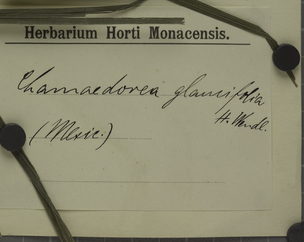 Herbarium Horti Monacensis.
Chamaedorea glaucifolia
H. Wendl.
(Mexic.)